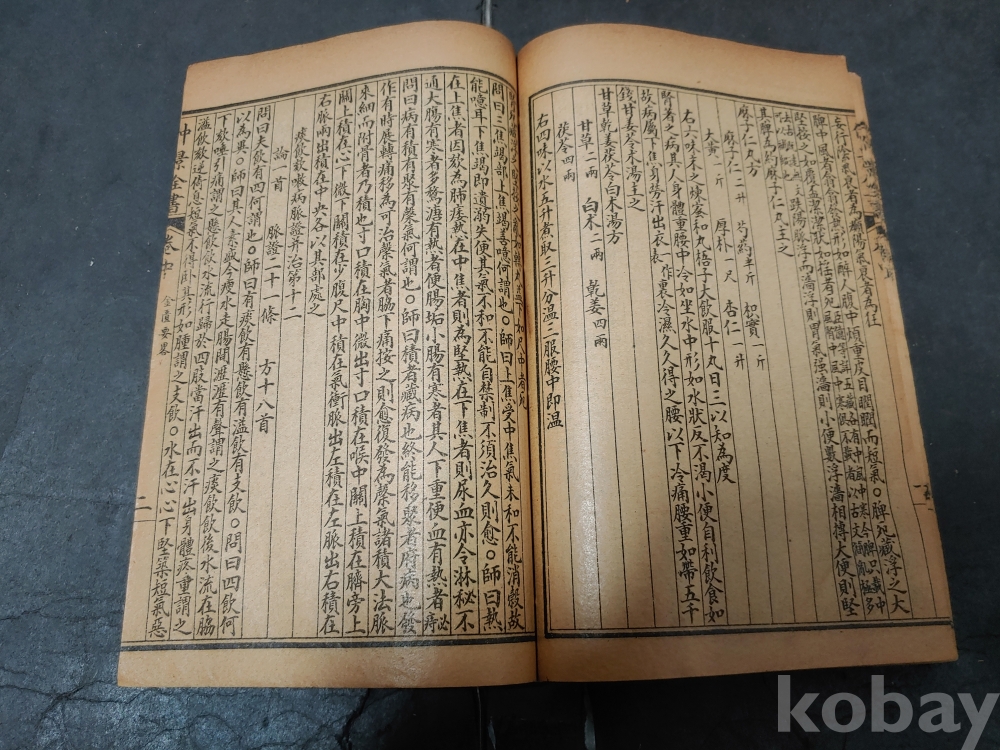 妄行陰氣衰者為癲陽氣衰者為狂
脾中風者翕翕發熱形如醉人腹中煩重皮目瞤瞤而短氣。脾死藏浮之大
堅按之如覆盃潔潔狀如搖者死
趺陽脈浮而濇浮則胃氣強濇則小便數浮濇相摶大便則堅
其脾為約麻子仁丸主之
麻子仁二升　芍藥半斤　枳實一斤
大黃　厚朴一尺　杏仁一升
右六味末之煉蜜和丸梧子大飲服十丸日三以知為度
腎著之病其人身體重腰中冷如坐水中形如水狀反不渴小便自利飲食如
故病屬下焦身勞汗出衣裏冷濕久久得之腰以下冷痛腰重如帶五千
錢甘姜苓朮湯主之
甘草乾姜茯苓白朮湯方
甘草二兩　白朮二兩　乾姜四兩
茯苓四兩
右四味以水五升煮取三升分溫三服腰中即溫
問曰三焦竭部上焦竭善噫何謂也。師曰上焦受中焦氣未和不能消穀故
能噫耳下焦竭即遺溺失便其氣不和不能自禁制不須治久則愈。師曰熱
在上焦者因欬為肺痿熱在中焦者則為堅熱在下焦者則尿血亦令淋秘不
通大腸有寒者多鶩溏有熱者便腸垢小腸有寒者其人下重便血有熱者必痔
問曰病有積有聚有䅽氣何謂也。師曰積者藏病也終不能移聚者府病也發
作有時展轉痛移為可治䅽氣者脇下痛按之則愈復發為䅽氣諸積大法脈
來細而附骨者乃積也寸口積在胸中微出寸口積在喉中關上積在臍旁上
關上積在心下微下關積在少腹尺中積在氣衝脈出左積在左脈出右積在
右脈兩出積在中央各以其部處之
痰飲欬嗽病脈證并治第十二
論一首　脈證二十一條　方十八首
問曰夫飲有四何謂也。師曰有痰飲有懸飲有溢飲有支飲。問曰四飲何
以為異。師曰其人素盛今瘦水走腸間瀝瀝有聲謂之痰飲飲後水流在脇
下欬唾引痛謂之懸飲飲水流行歸於四肢當汗出而不汗出身體疼重謂之
溢飲欬逆倚息短氣不得臥其形如腫謂之支飲。水在心心下堅築短氣惡
仲景全書　卷中　金匱要畧　二
kobay